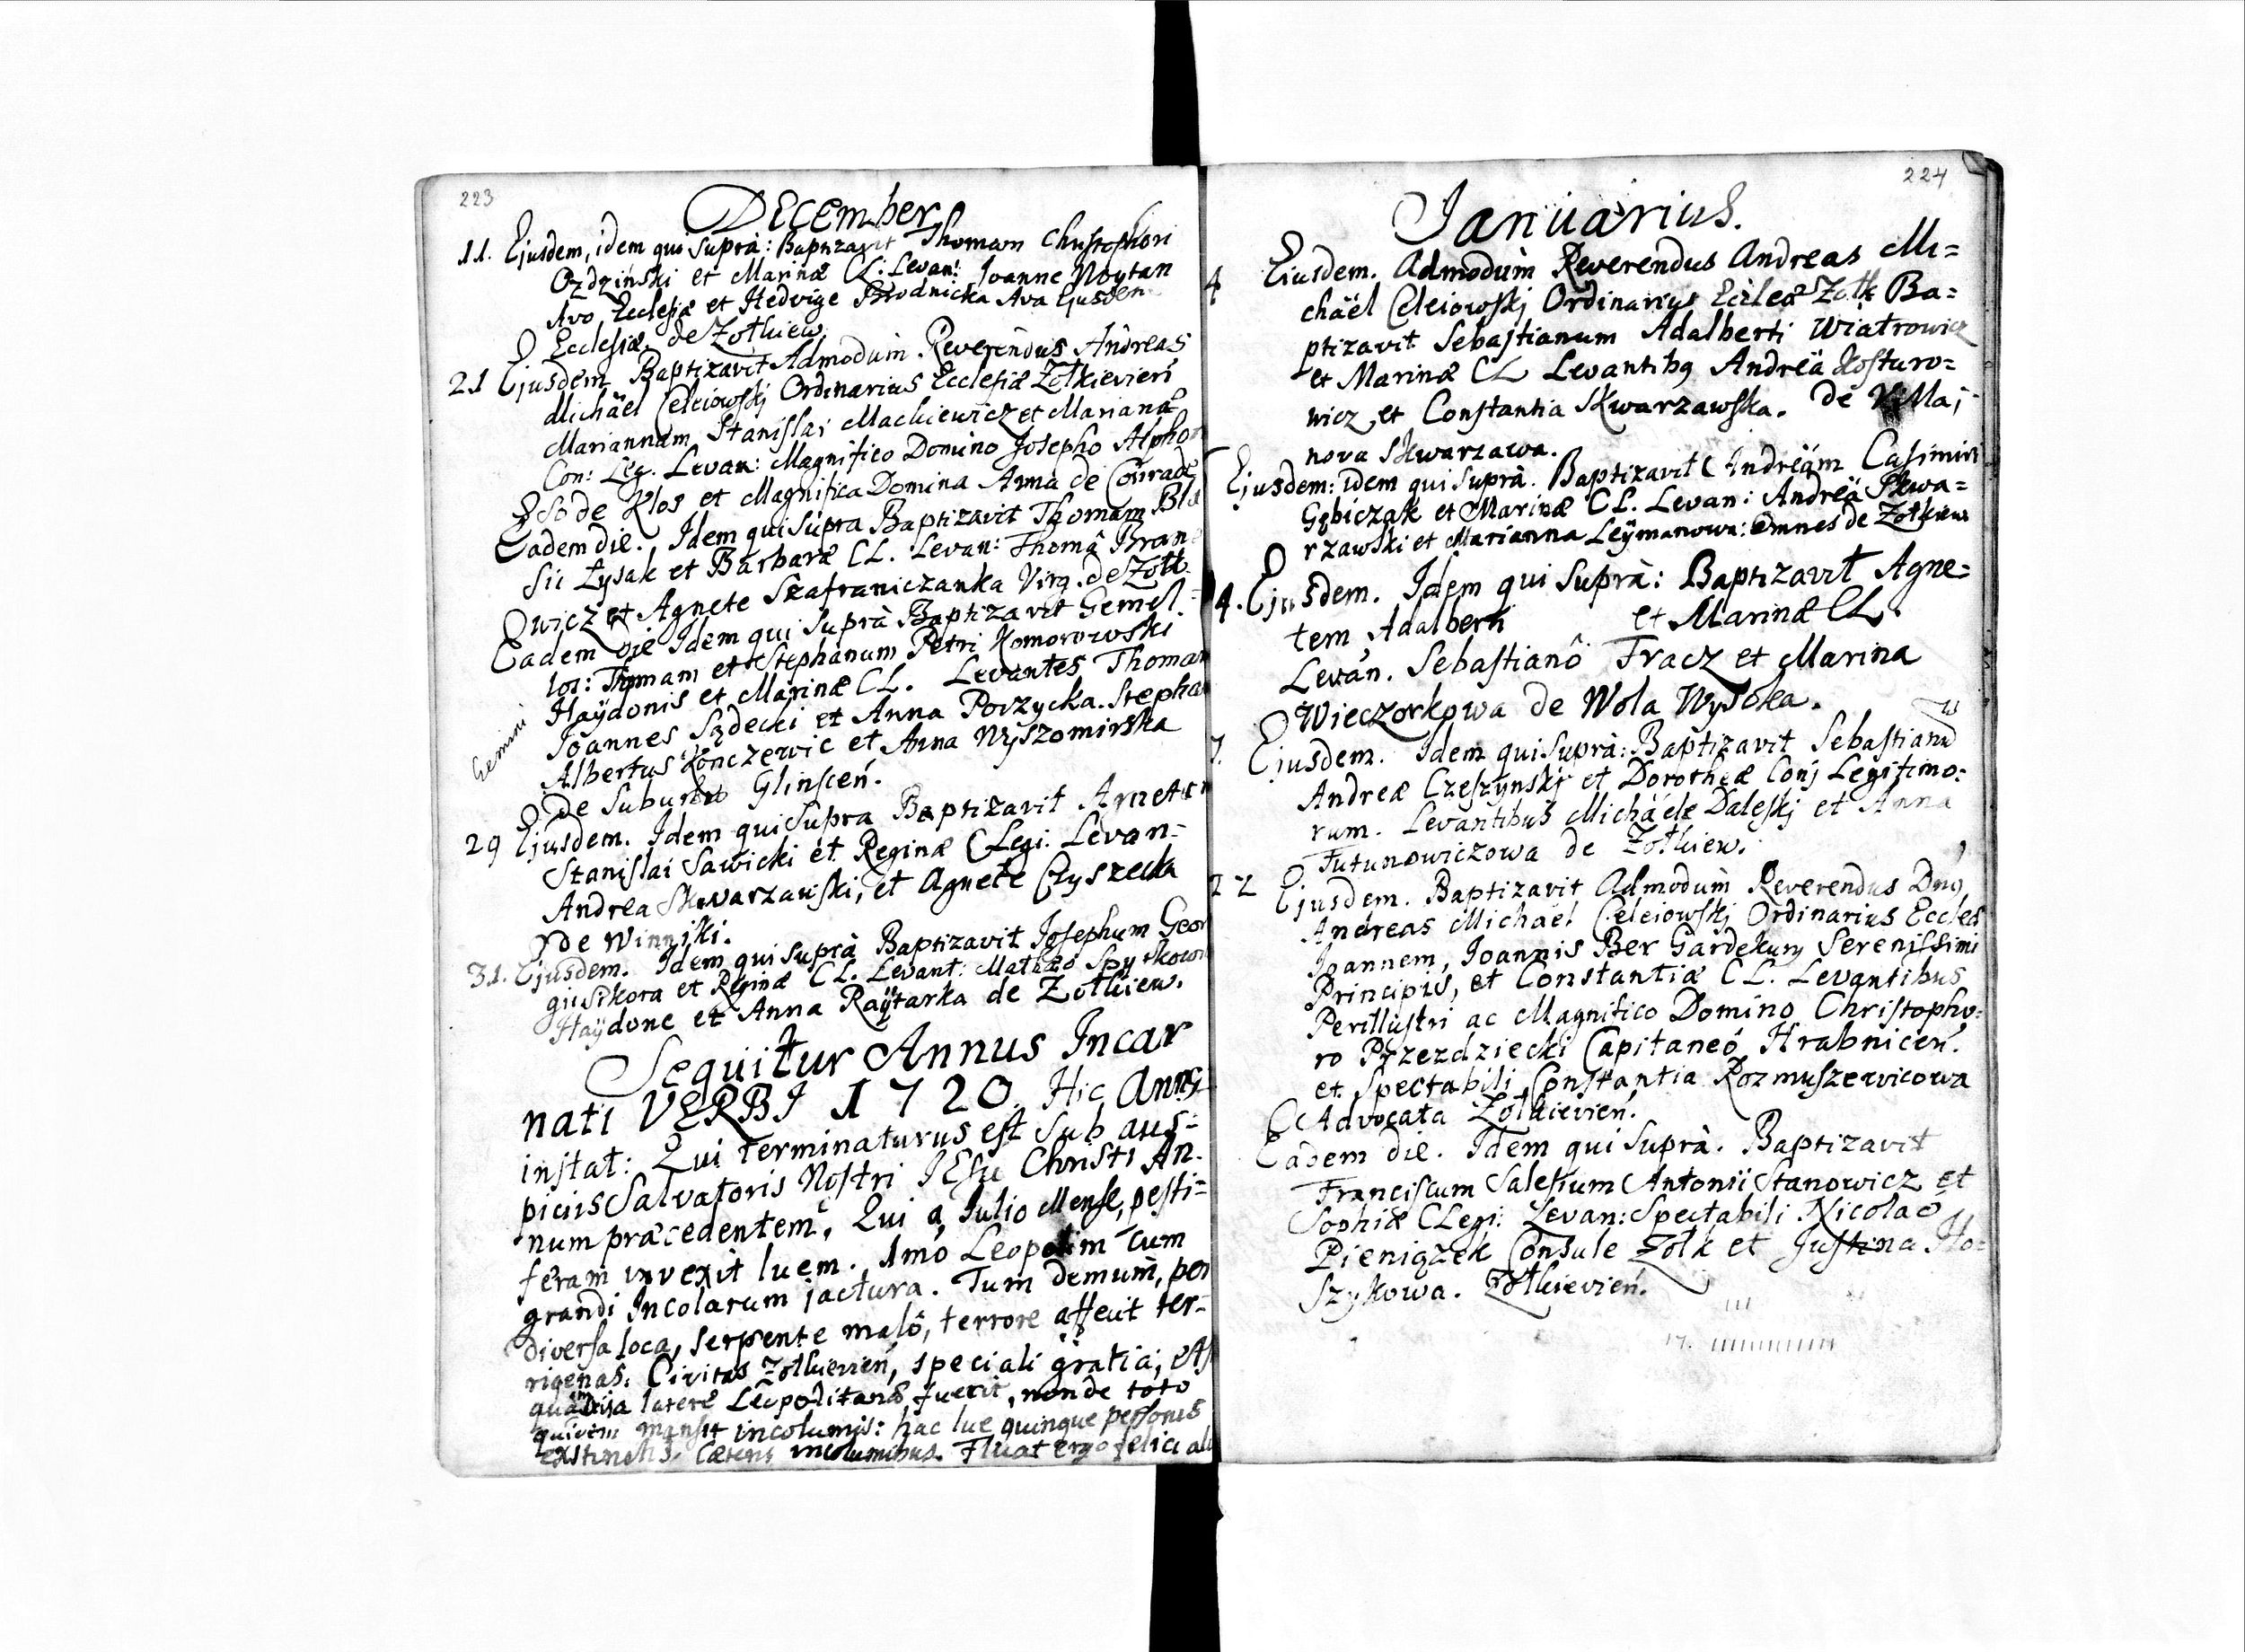 223
December
11. Ejusdem, idem qui suprà: Baptizavit Thomam Christophori
Ozdzinski et Marinæ CL: Levan: Joanne Noytan
Avo Ecclesiæ et Hedvige Brodnicka Ava Ejusdem
Ecclesiæ, de Zołkiew
21 Ejusdem Baptizavit Admodum Reverendus Andreas
Michäel Celeiowskj Ordinarius Ecclesiæ Zołkievień
Mariannam Stanislai Mackiewicz et Marianæ
Con: Leg. Levan: Magnifico Domino Josepho Alpho
de Klos et Magnifica Domina Anna de Conrade
Eadem die. Idem qui supra Baptizavit Thomam Bla
sii Łysak et Barbaræ CL. Levan: Thomâ Bran
owicz et Agnete Szafraniczanka Virg. de Zołk
Eadem die Idem qui suprà Baptizavit Gemel-
los: Thomam et Stephanum Petri Komorowski
Gemini
Haÿdonis et Marinæ CL. Levantes Thomam
Joannes Sądecki et Anna Porzycka. Stepha
Albertus Konczewic et Anna Wyszomirska
de Suburbio Glinsceń.
29 Ejusdem. Idem qui supra Baptizavit Agnetem
Stanislai Sawicki et Reginæ CLegi: Levan-
Andrea Skwarzawski, et Agnete Czyszecka
de Winniki.
31. Ejusdem. Idem qui suprà Baptizavit Josephum Geor
gii Sikora et Reginæ CL. Levant: Mathæo Spytkow
Haÿdone et Anna Raÿtarka de Zołkiew.
Sequitur Annus Incar
nati VERBI 1720. Hic Annus
instat: Qui terminaturus est sub aus-
piciis Salvatoris Nostri JEsu Christi An-
num præcedentem, Qui a Julio Mense, pesti-
feram invexit luem. Imo Leopolim cum
grandi Incolarum jactura. Tum demum, per
diversa loca, serpente malô, terrore affecit ter-
rigenas. Civitas Zołkievień, speciali gratia,
latere Leopolitano fuerit, non de toto
quidem mansit incolumis: hac lue quinque personis
extinctis, Cæteris incolumibus. Fluat ergo felici
224
Januarius.
4 Ejusdem. Admodum Reverendus Andreas Mi=
chäel Celeiowskj Ordinarius Eccleæ Zołk Ba=
ptizavit Sebastianum Adalberti Wiatrowicz
et Marinæ CL Levantibg Andreä Kosturo=
wicz et Constantia Skwarzawska. De
nova Skwarzawa.
Ejusdem: idem qui suprà. Baptizavit Andreäm Casimiri
Gębiczak et Marinæ CL. Levan: Andreä Skwa=
rzawski et Marianna Leÿmanowa: omnes de Zołkiew
4. Ejusdem. Idem qui suprà: Baptizavit Agne=
tem Adalberti et Marinæ CL.
Levan. Sebastianô Fracz et Marina
Wieczorkowa de Wola Wysoka.
7. Ejusdem. Idem qui suprà: Baptizavit Sebastianū
Andreæ Czeszynskj et Dorotheæ Conj Legitimo:
rum. Levantibus Michäele Daleskj et Anna
Futunowiczowa de Zołkiew.
22 Ejusdem. Baptizavit Admodum Reverendus Dng
Andreas Michael Celeiowskj Ordinarius Eccles
Joannem, Joannis Ber Gardekurg Serenissimi
Principis, et Constantiæ CL. Levantibus
Perillustri ac Magnifico Domino Christopho:
ro Przezdziecki Capitaneo Hrabniceń.
et Spectabili Constantia Rozmuszewicowa
Advocata Zołkievień.
Eadem die. Idem qui suprà. Baptizavit
Franciscum Salesium Antonii Stanowicz et
Sophiæ CLegi: Levan: Spectabili Nicolaô
Pieniązek Consule Zołk et Justina Ho=
szykowa. Zołkievień.